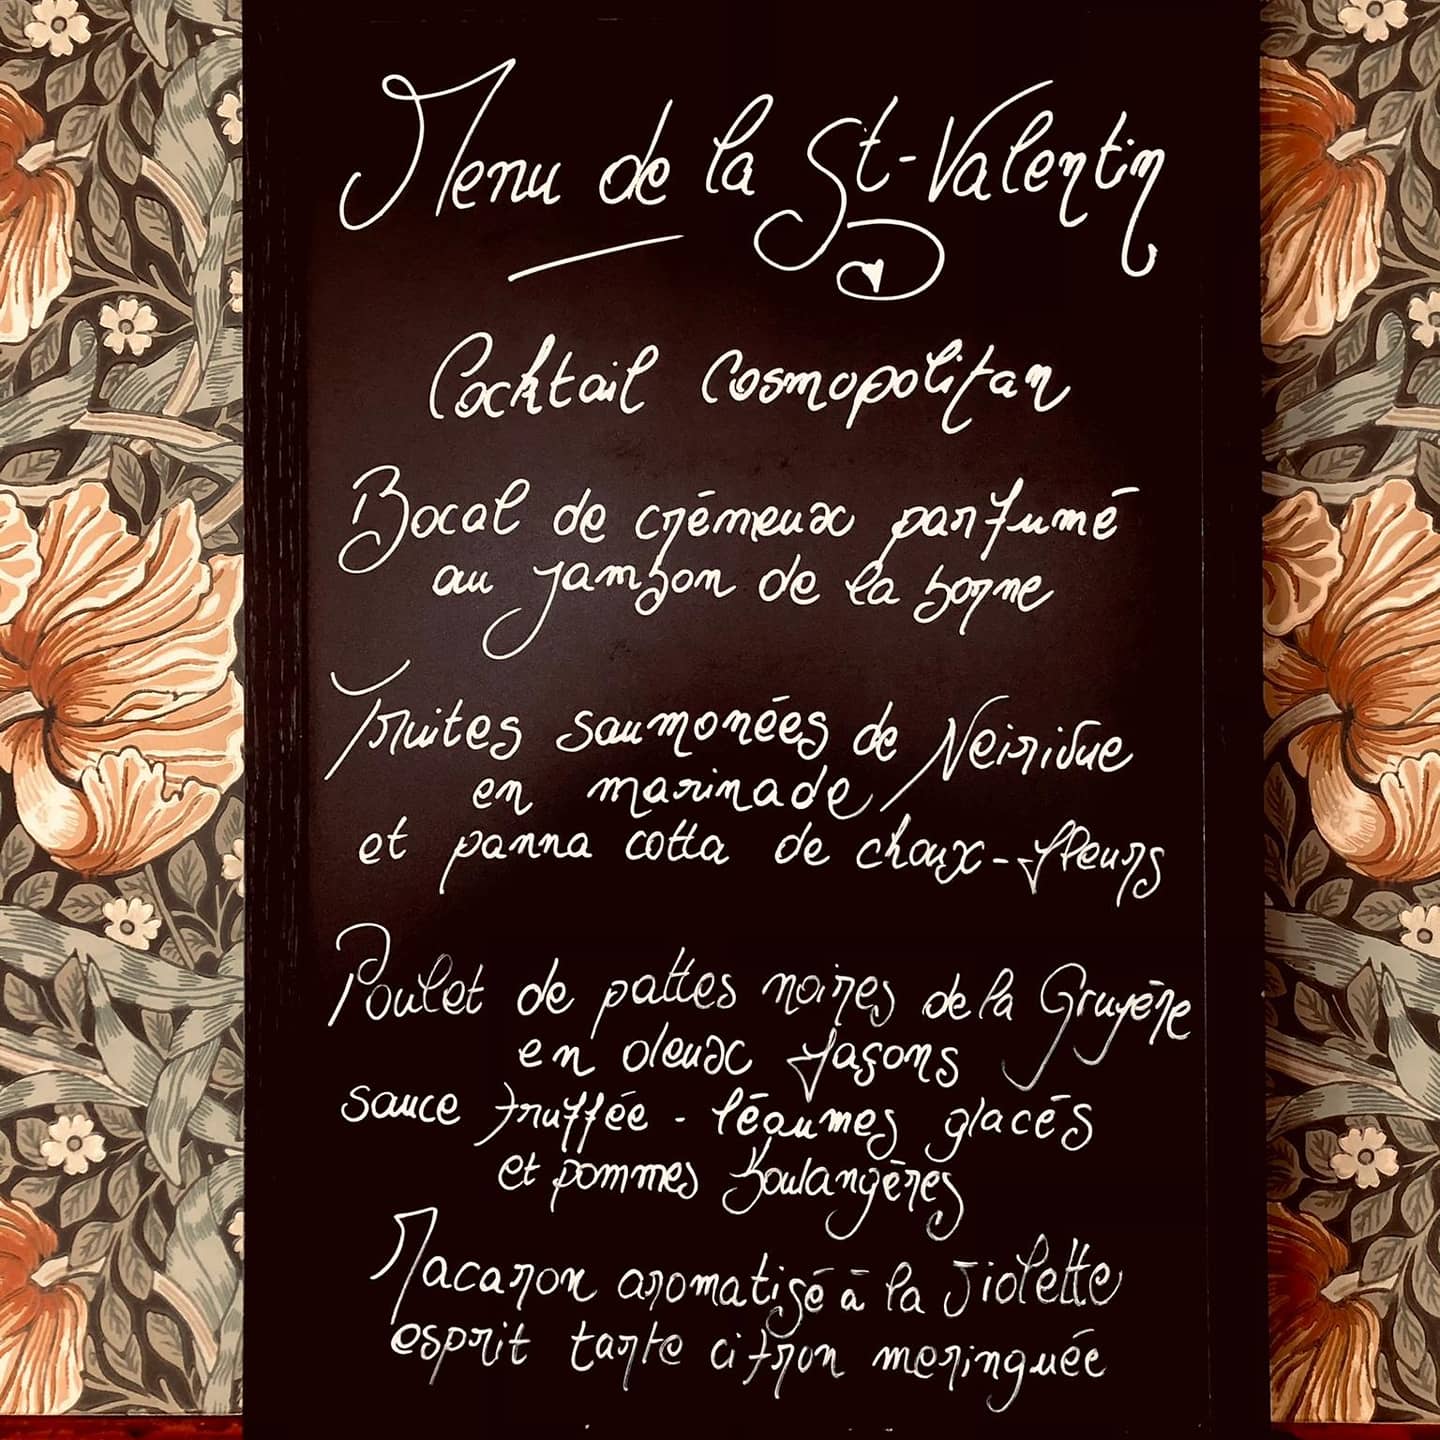 Menu de la St-Valentin
Cocktail Cosmopolitan
Bocal de crémeux parfumé
au jambon de la borne
Truites saumonées de Neirivue
en marinade
et panna cotta de choux-fleurs
Poulet de pattes noires de la Gruyère
en deux façons
sauce truffée - légumes glacés
et pommes boulangères
Macaron aromatisé à la violette
esprit tarte citron meringuée